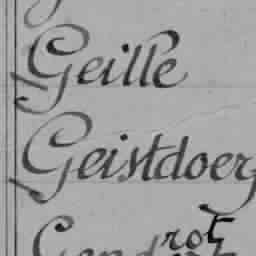 Geille
Geistdoerf